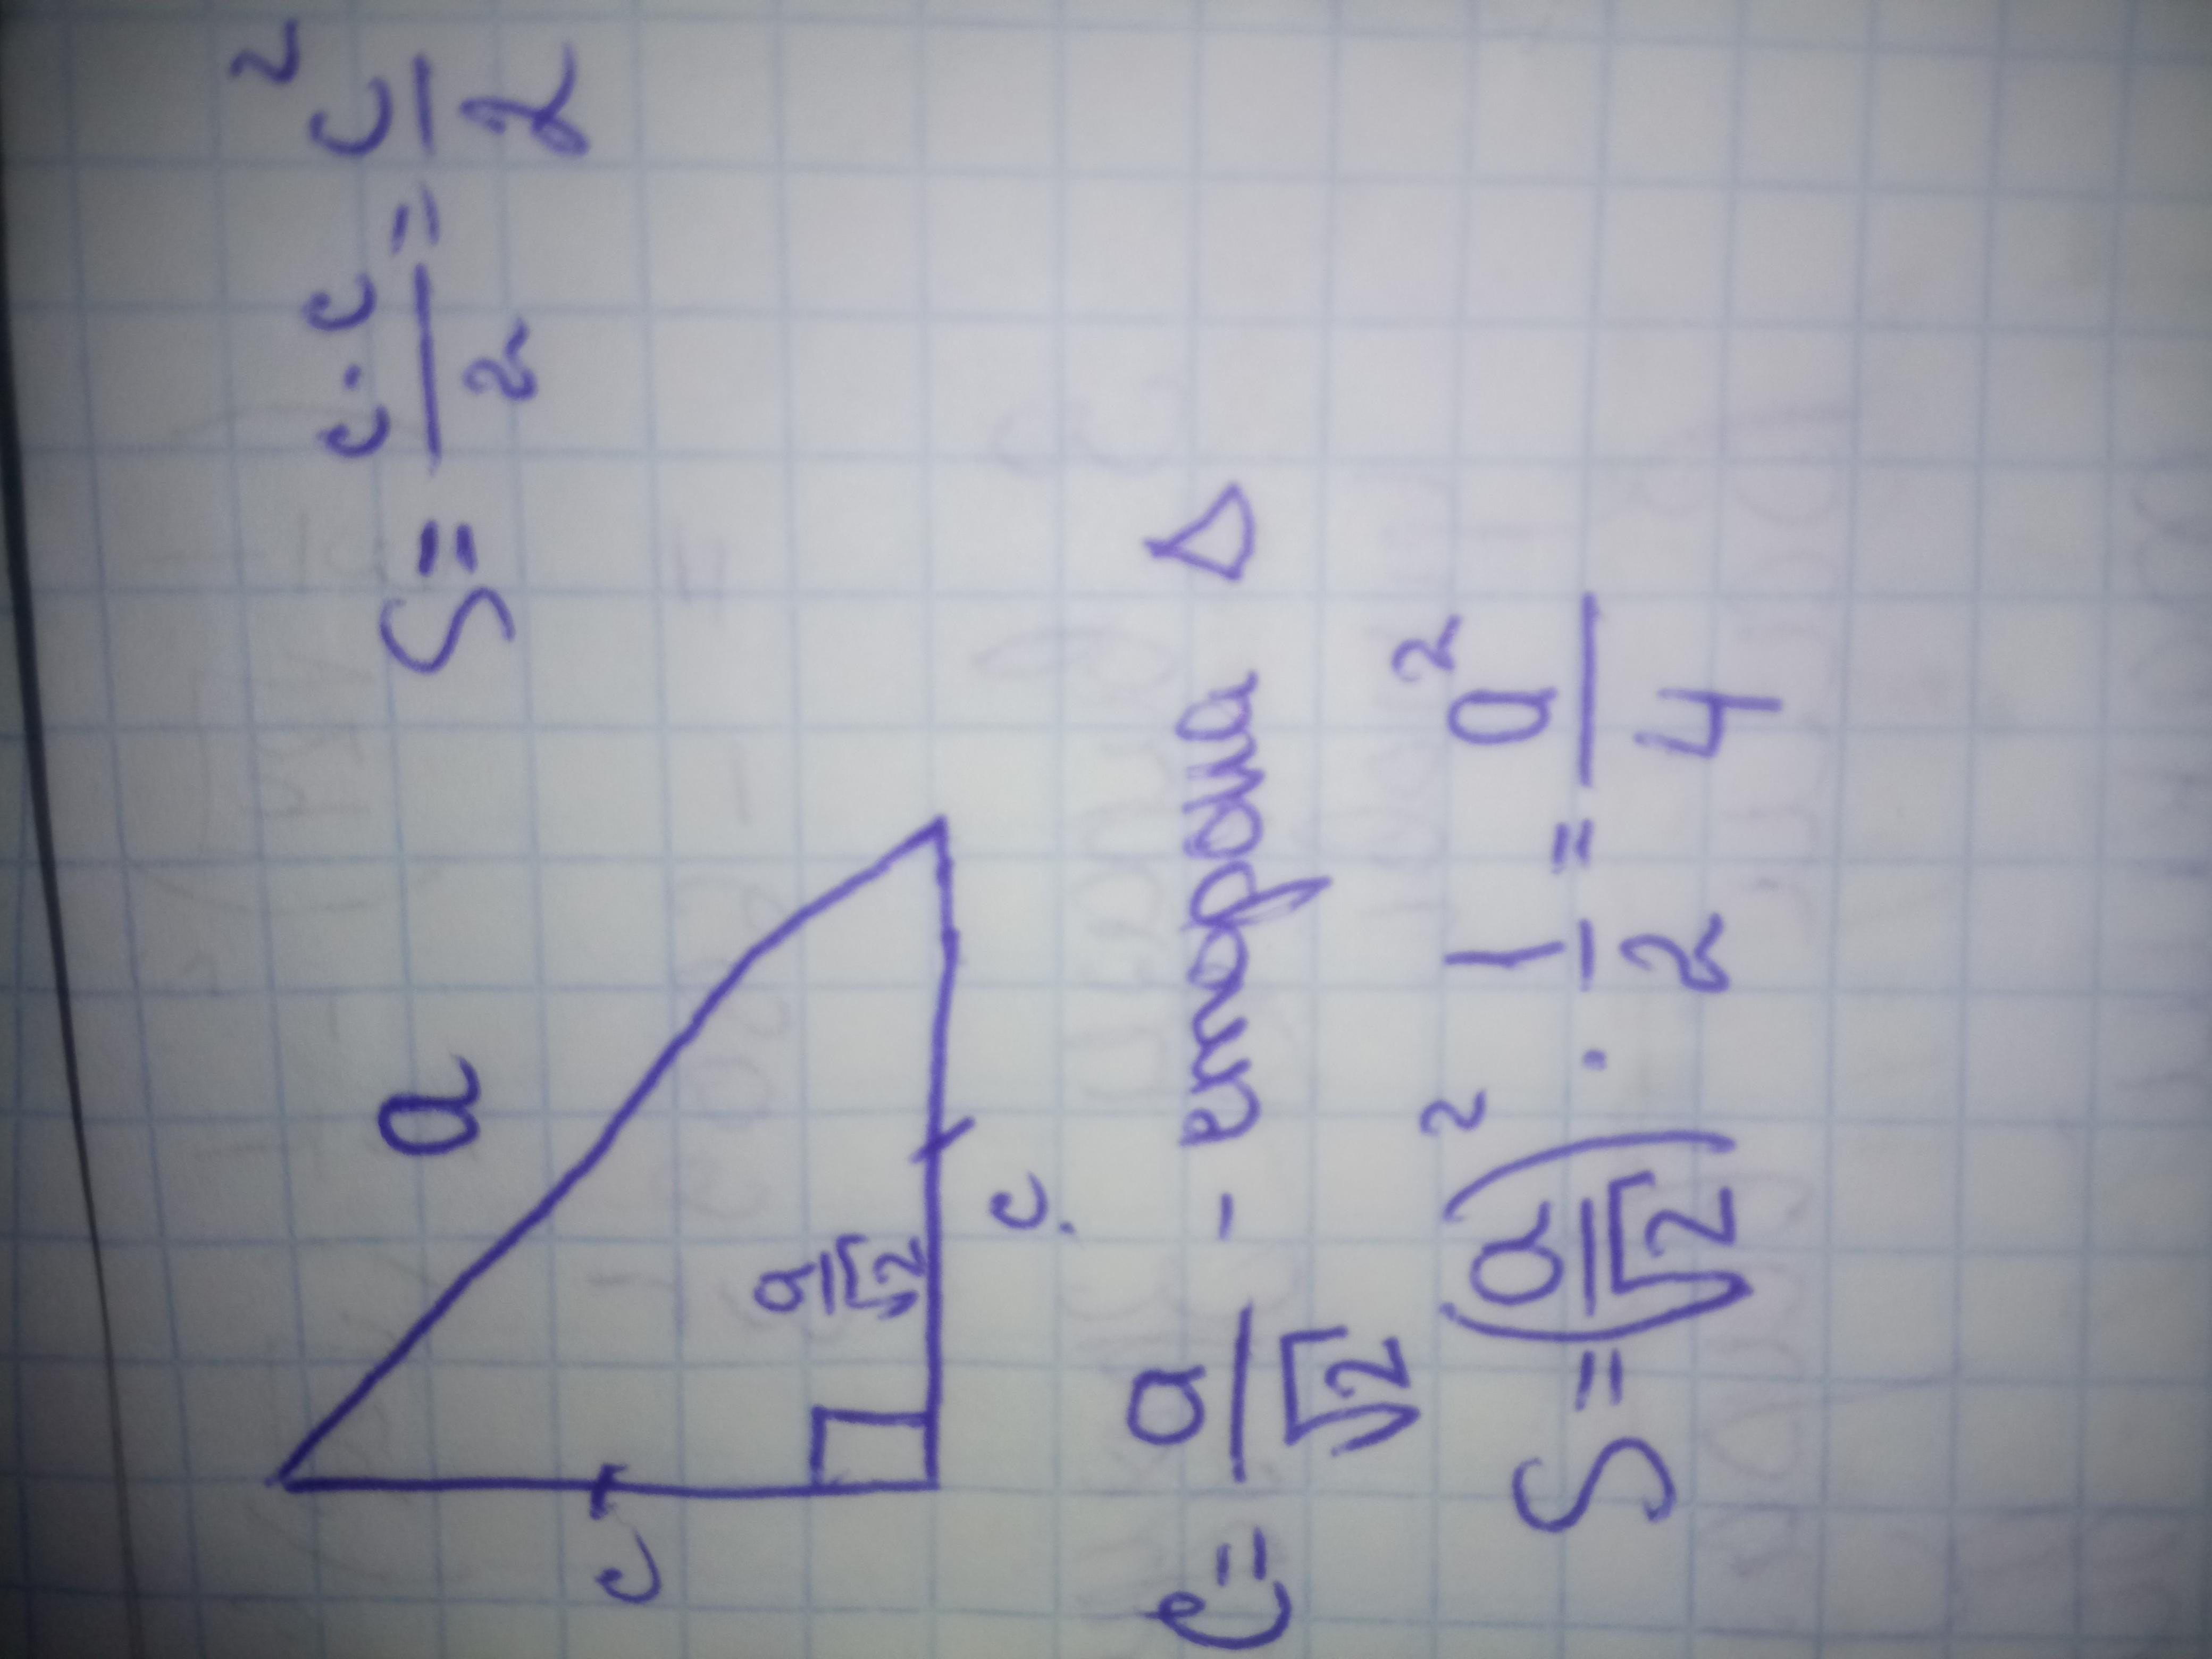 S = c·c/2 = c²/2
a
c
a/√2
c.
c = a/√2 - сторона Δ
S = (a/√2)² · 1/2 = a²/4